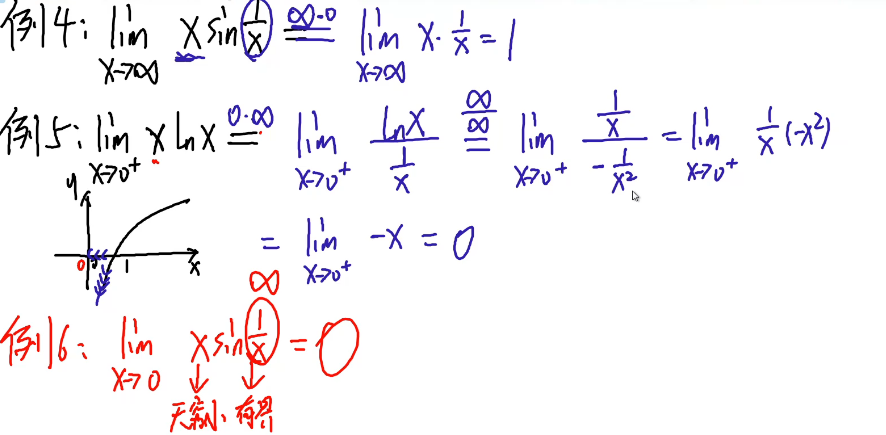 例4: lim x→∞ x sin 1/x =(∞·0) lim x→∞ x· 1/x = 1
例5: lim x→0⁺ x ln x =(0·∞) lim x→0⁺ ln x / (1/x) =(∞/∞) lim x→0⁺ (1/x) / (-1/x²) = lim x→0⁺ 1/x (-x²)
= lim x→0⁺ -x = 0
y
0 1 x
∞
例6: lim x→0 x sin 1/x = 0
无穷小 有界